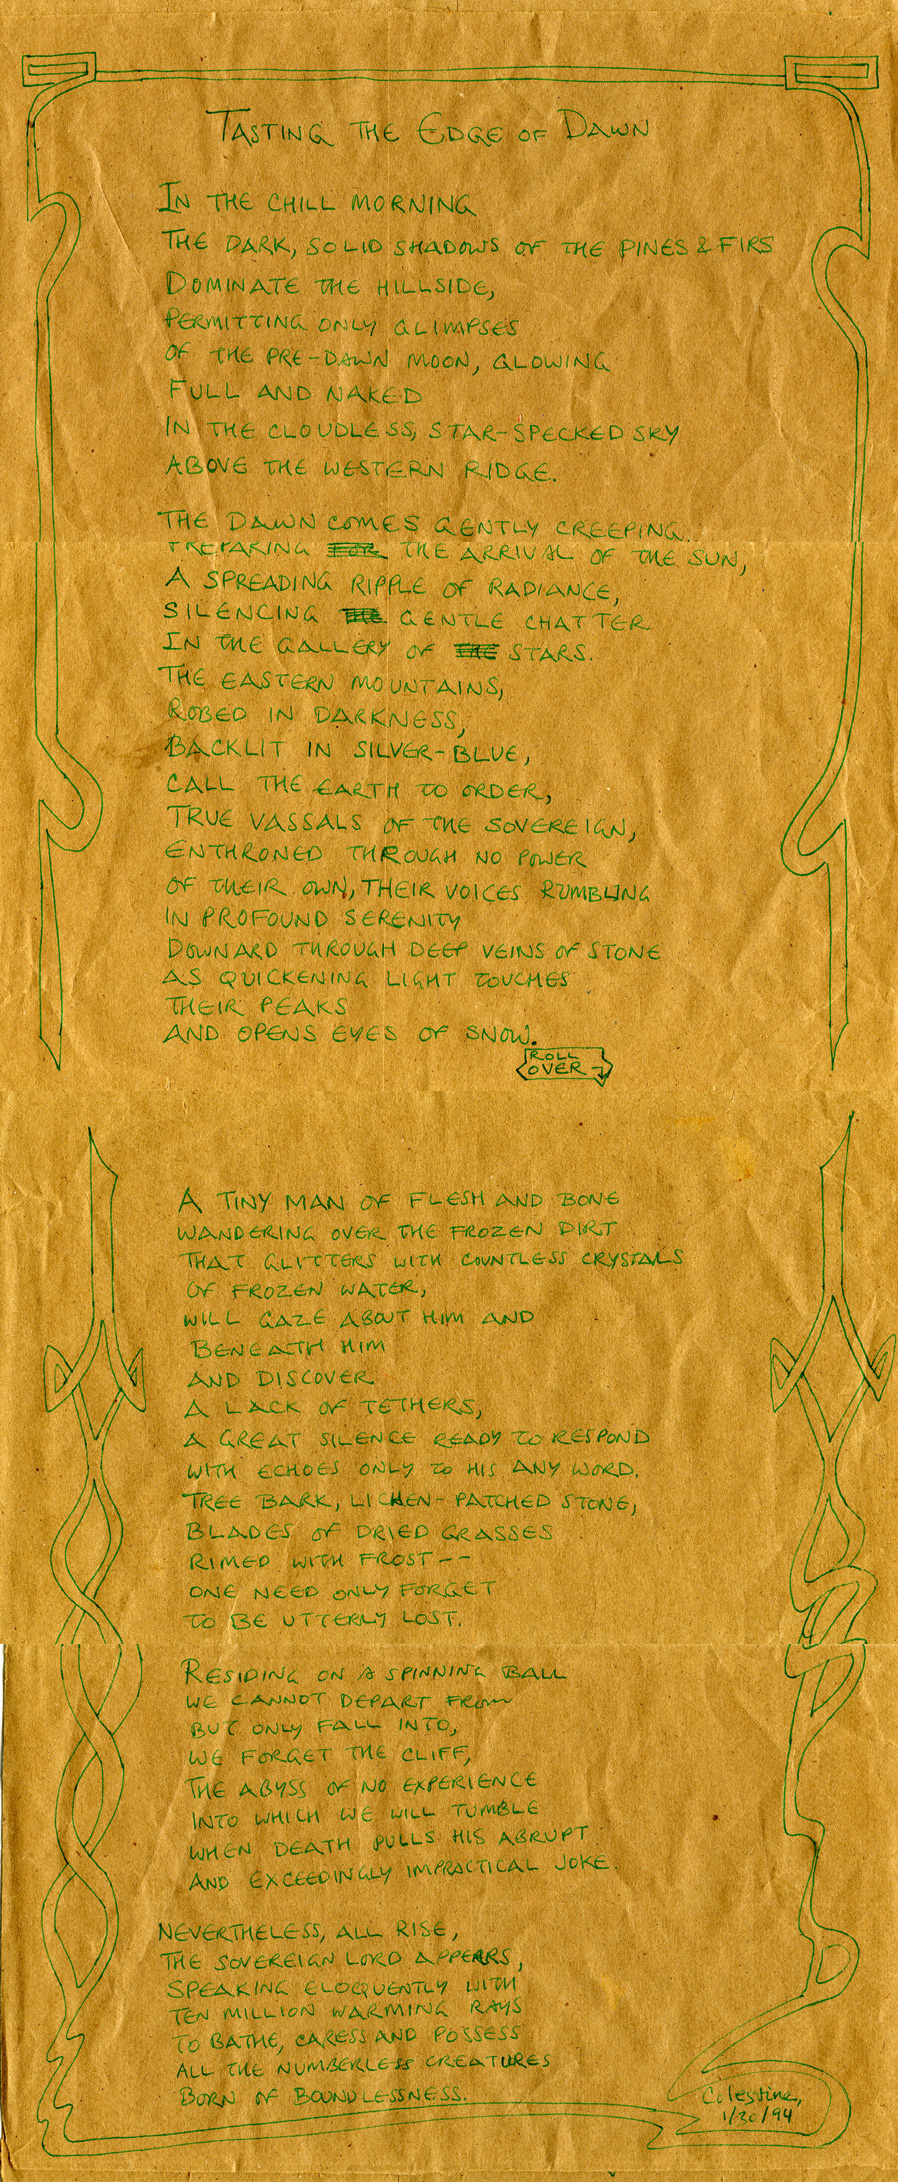 TASTING THE EDGE OF DAWN
IN THE CHILL MORNING
THE DARK, SOLID SHADOWS OF THE PINES & FIRS
DOMINATE THE HILLSIDE,
PERMITTING ONLY GLIMPSES
OF THE PRE-DAWN MOON, GLOWING
FULL AND NAKED
IN THE CLOUDLESS, STAR-SPECKED SKY
ABOVE THE WESTERN RIDGE.
THE DAWN COMES GENTLY CREEPING.
PREPARING FOR THE ARRIVAL OF THE SUN,
A SPREADING RIPPLE OF RADIANCE,
SILENCING THE GENTLE CHATTER
IN THE GALLERY OF THE STARS.
THE EASTERN MOUNTAINS,
ROBED IN DARKNESS,
BACKLIT IN SILVER-BLUE,
CALL THE EARTH TO ORDER,
TRUE VASSALS OF THE SOVEREIGN,
ENTHRONED THROUGH NO POWER
OF THEIR OWN, THEIR VOICES RUMBLING
IN PROFOUND SERENITY
DOWNARD THROUGH DEEP VEINS OF STONE
AS QUICKENING LIGHT TOUCHES
THEIR PEAKS
AND OPENS EYES OF SNOW.
ROLL
OVER
A TINY MAN OF FLESH AND BONE
WANDERING OVER THE FROZEN DIRT
THAT GLITTERS WITH COUNTLESS CRYSTALS
OF FROZEN WATER,
WILL GAZE ABOUT HIM AND
BENEATH HIM
AND DISCOVER
A LACK OF TETHERS,
A GREAT SILENCE READY TO RESPOND
WITH ECHOES ONLY TO HIS ANY WORD.
TREE BARK, LICHEN-PATCHED STONE,
BLADES OF DRIED GRASSES
RIMED WITH FROST--
ONE NEED ONLY FORGET
TO BE UTTERLY LOST.
RESIDING ON A SPINNING BALL
WE CANNOT DEPART FROM
BUT ONLY FALL INTO,
WE FORGET THE CLIFF,
THE ABYSS OF NO EXPERIENCE
INTO WHICH WE WILL TUMBLE
WHEN DEATH PULLS HIS ABRUPT
AND EXCEEDINGLY IMPRACTICAL JOKE.
NEVERTHELESS, ALL RISE,
THE SOVEREIGN LORD APPEARS,
SPEAKING ELOQUENTLY WITH
TEN MILLION WARMING RAYS
TO BATHE, CARESS AND POSSESS
ALL THE NUMBERLESS CREATURES
BORN OF BOUNDLESSNESS.
Celestine,
1/30/94